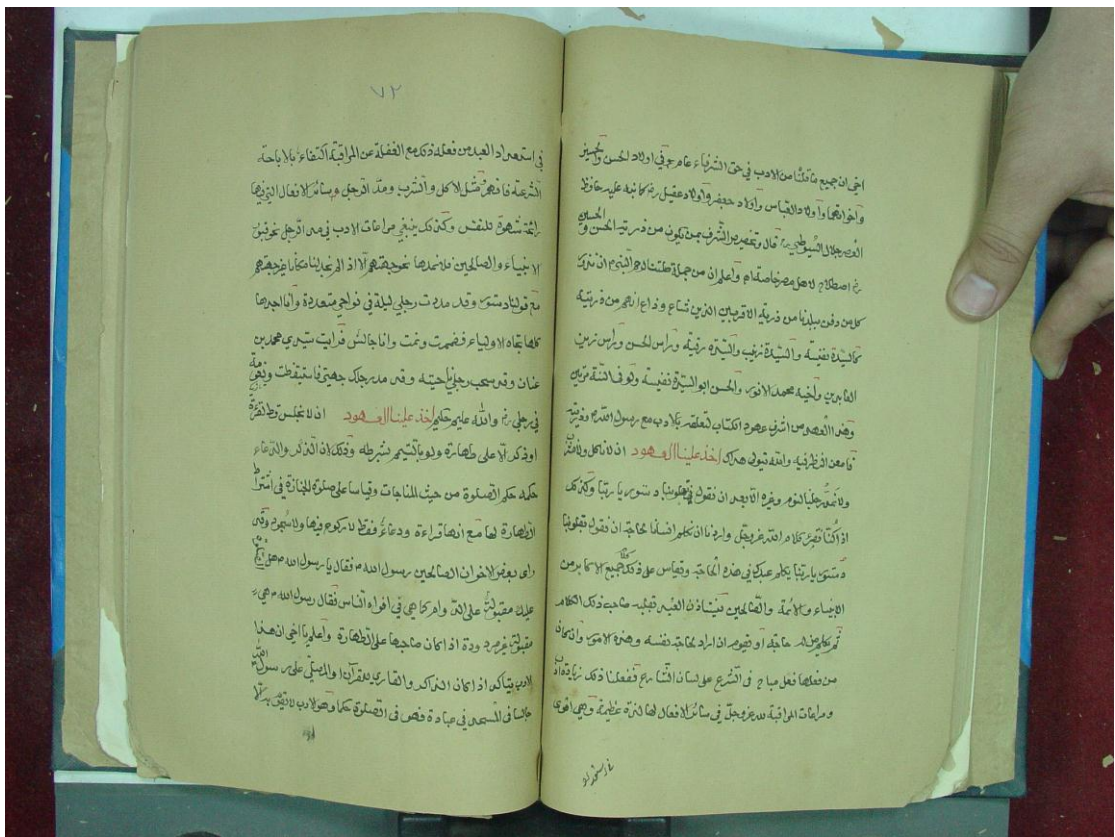 اخي ان جميع ما قلنا من الادب في حق الشرفاء عام في اولاد الحسن والحسين
واخواتهما واولاد العباس واولاد جعفر واولاد عقيل رضي كما نبه عليه حافظ
العصر جلال السيوطي قال وتخصيص الشرف بمن يكون من ذرية الحسن والحسين
اصطلاح لاهل مصر خاصة واعلم ان من جملة طلب الرحم ان نزور
كل من دفن ببلدنا من ذريته الاقربين الذين شاع وذاع انهم من ذريته
كالسيدة نفيسة والسيدة زينب والسيدة رقية وراس الحسن وراس زين
العابدين واخيه محمد الانور والحسن ابو السيدة نفيسة
وهذا العهد من اشرف عهود الكتاب لتعلقه بالادب مع رسول الله وذريته
فامعن النظر فيه والله يتولى هداك اخذ علينا العهود ان لا ناكل ولا نشرب
ولا نمد رجلنا لنوم وغيره الا بعد ان نقول بقلوبنا دستور يا ربنا وكذلك
اذا كنا نقرئ كلام الله عز وجل واردنا ان نكلم انسانا لحاجة ان نقول بقلوبنا
دستور يا ربنا نكلم عبدك في هذه الحاجة وقياس على ذلك جميع الاكابر من
الانبياء والائمة والصالحين صاحب ذلك الكلام
ثم يكلم من له حاجة او يقوم ان اراد لحاجة نفسه وهذه الامور وان كان
من فعلها فعل مباح في الشرع على لسان الشارع ففعلنا ذلك زيادة
ومراعات المراقبة لله عز وجل في سائر الافعال لها لذة عظيمة وهي اقوى
٧٢
في استعداد العبد من فعله ذلك مع الغفلة عن المراقبة اكتفاء بالاباحة
الشرعية فافهم ومثل الاكل والشرب ومد الرجل سائر الافعال التي فيها
رائحة شهوة للنفس وكذلك ينبغي مراعات الادب في مد الرجل نحو قبور
الانبياء والصالحين فلا نمدها نحو جهتهم الا اذا لم نجد لنا مكانا غير جهتهم
مع قولنا دستور وقد مددت رجلي ليلة في نواحي متعددة وانا اجدها
كلها تجاه الاولياء فضممت ونمت وانا جالس فرايت سيدي محمد بن
عنان وقد سحب رجلي ناحيته وقال مد رجلك جهتي فاستيقظت
في رجلي والله عليم حكيم اخذ علينا العهود ان لا نجلس قط لقراءة
او ذكر الا على طهارة ولو بالتيمم بشرطه وذلك لان الذكر والدعاء
حكمه حكم الصلوة من حيث المناجات وقياسا على صلوة الجنازة في اشتراط
الطهارة لها مع انها قراءة ودعاء فقط لا ركوع فيها ولا سجود وقد
راى بعض الاخوان الصالحين رسول الله فقال يا رسول الله هل
عليك مقبولة على الدوام كما هي في افواه الناس فقال رسول الله هي
مقبولة غير مردودة اذا كان صاحبها على الطهارة واعلم يا اخي ان هذا
الادب يتاكد اذا كان الذاكر والقاري للقرآن او المصلي على رسول الله
جالسا في المسجد في عبادة فهو في الصلوة حكما وهو لادب